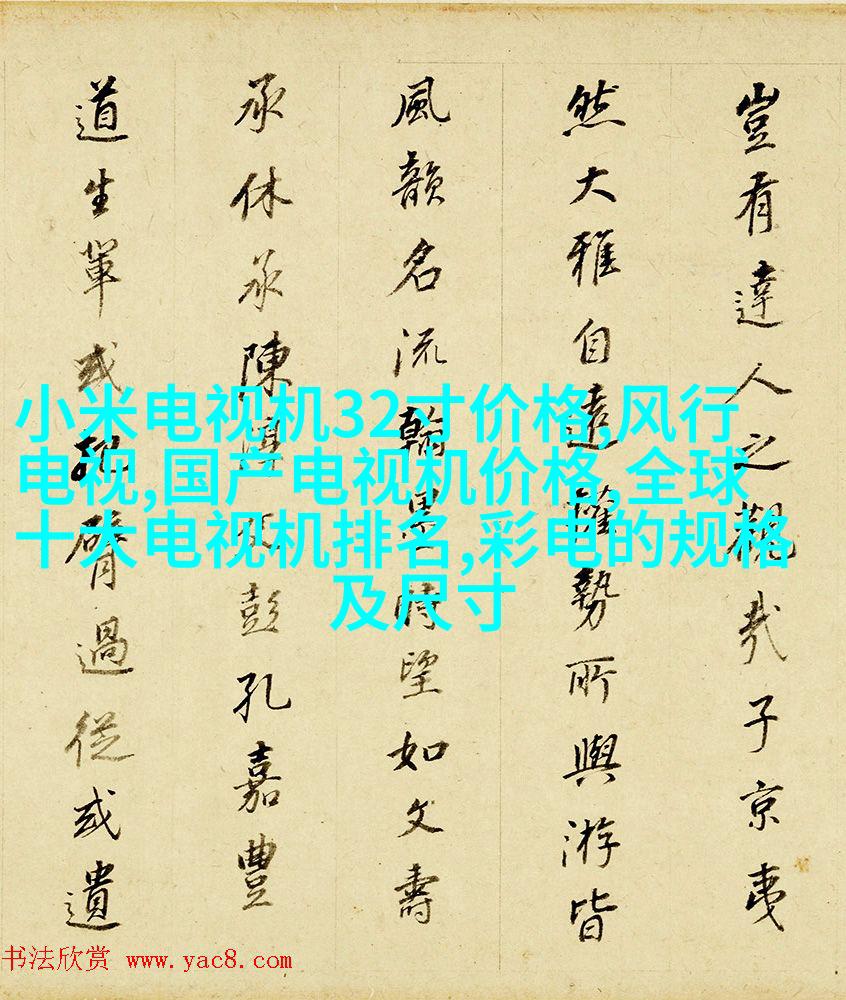 豈有達人之觀哉子京夷
然大雅自遠權勢所與游皆
風韻名流翰墨時望如文壽
承休承陳淳父彭孔嘉豐
道生輩或把臂過從或遺
小米电视机32寸价格,风行
电视,国产电视机价格,全球
十大电视机排名,彩电的规格
及尺寸
书法欣赏 www.yac8.com